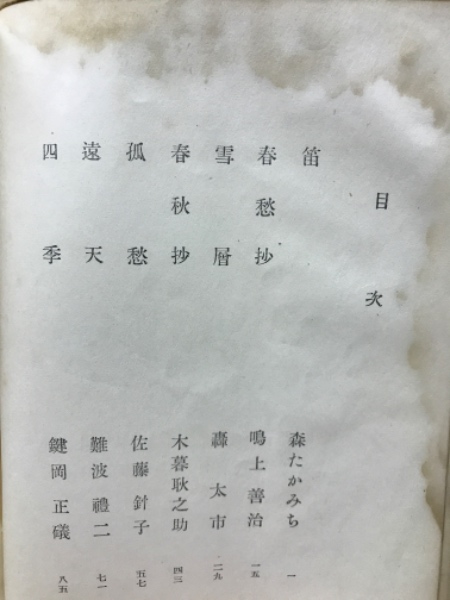 目次
笛 森たかみち 一
春愁抄 鳴上善治 一五
雪層 轟太市 二九
春秋抄 木暮耿之助 四三
孤愁 佐藤針子 五七
遠天 難波禮二 七一
四季 鍵岡正礒 八五